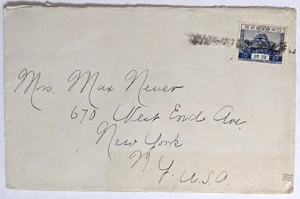 Mrs. Max Never
670 West End Ave.
New York
N.Y.
U.S.A.